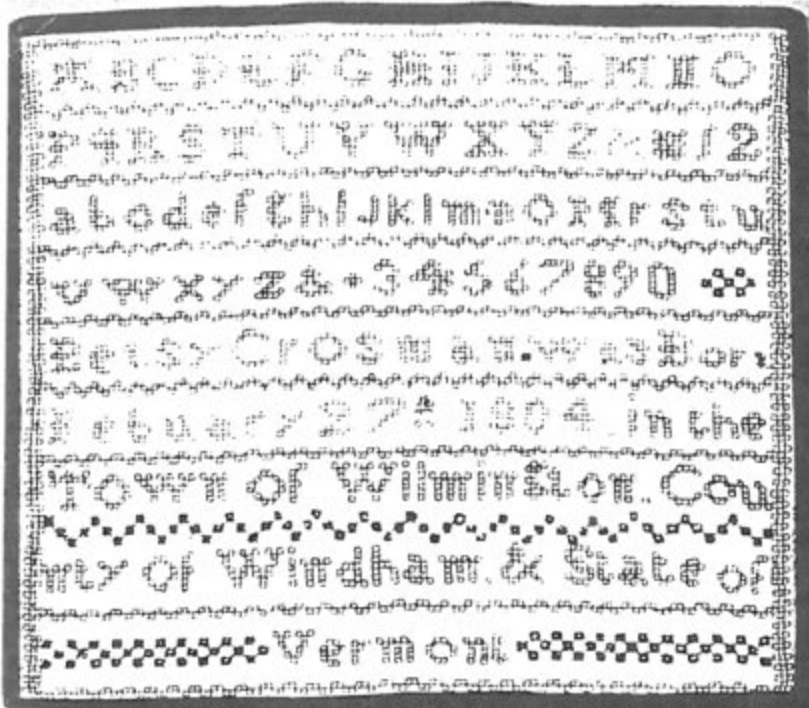 A B C D E F G H I J K L M N O
P Q R S T U V W X Y Z & # 1 2
a b c d e f g h i J k l m n O p q r s t u
v w x y z & + 3 4 5 6 7 8 9 0
Betsy Crosman. was Bor
February 27th 1804 in the
Town of Wilmington. Cou
nty of Windham. & State of
Vermont